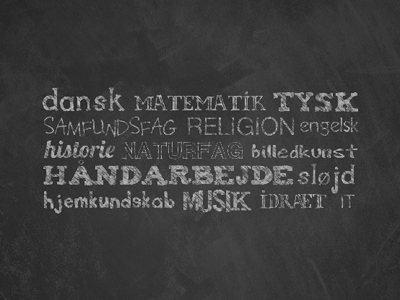 dansk MATEMATIK TYSK
SAMFUNDSFAG RELIGION engelsk
historie NATURFAG billedkunst
HÅNDARBEJDE sløjd
hjemkundskab MUSIK IDRÆT IT